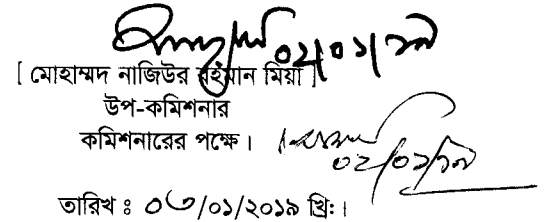 ০২/০১/১৯
[ মোহাম্মদ নাজিউর রহমান মিয়া ]
উপ-কমিশনার
কমিশনারের পক্ষে।
০২/০১/১৯
তারিখ ঃ ০৩/০১/২০১৯ খ্রি:।